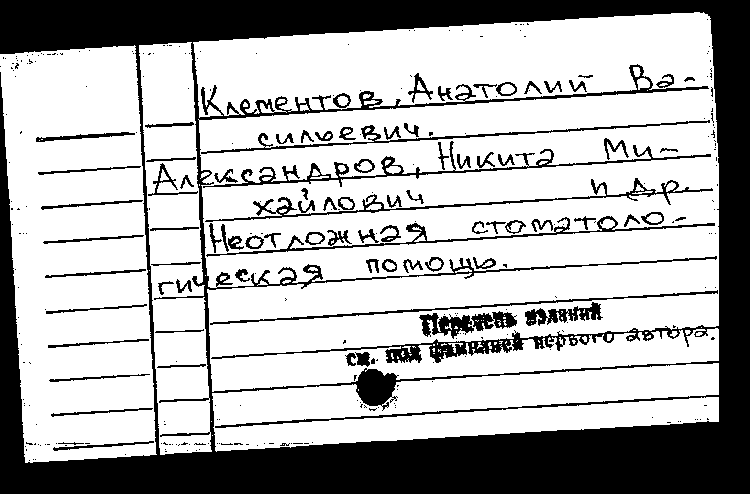 Клементов, Анатолий Ва-
сильевич.
Александров, Никита Ми-
хайлович и др.
Неотложная стоматоло-
гическая помощь.
Перечень изданий
см. под фамилией первого автора.